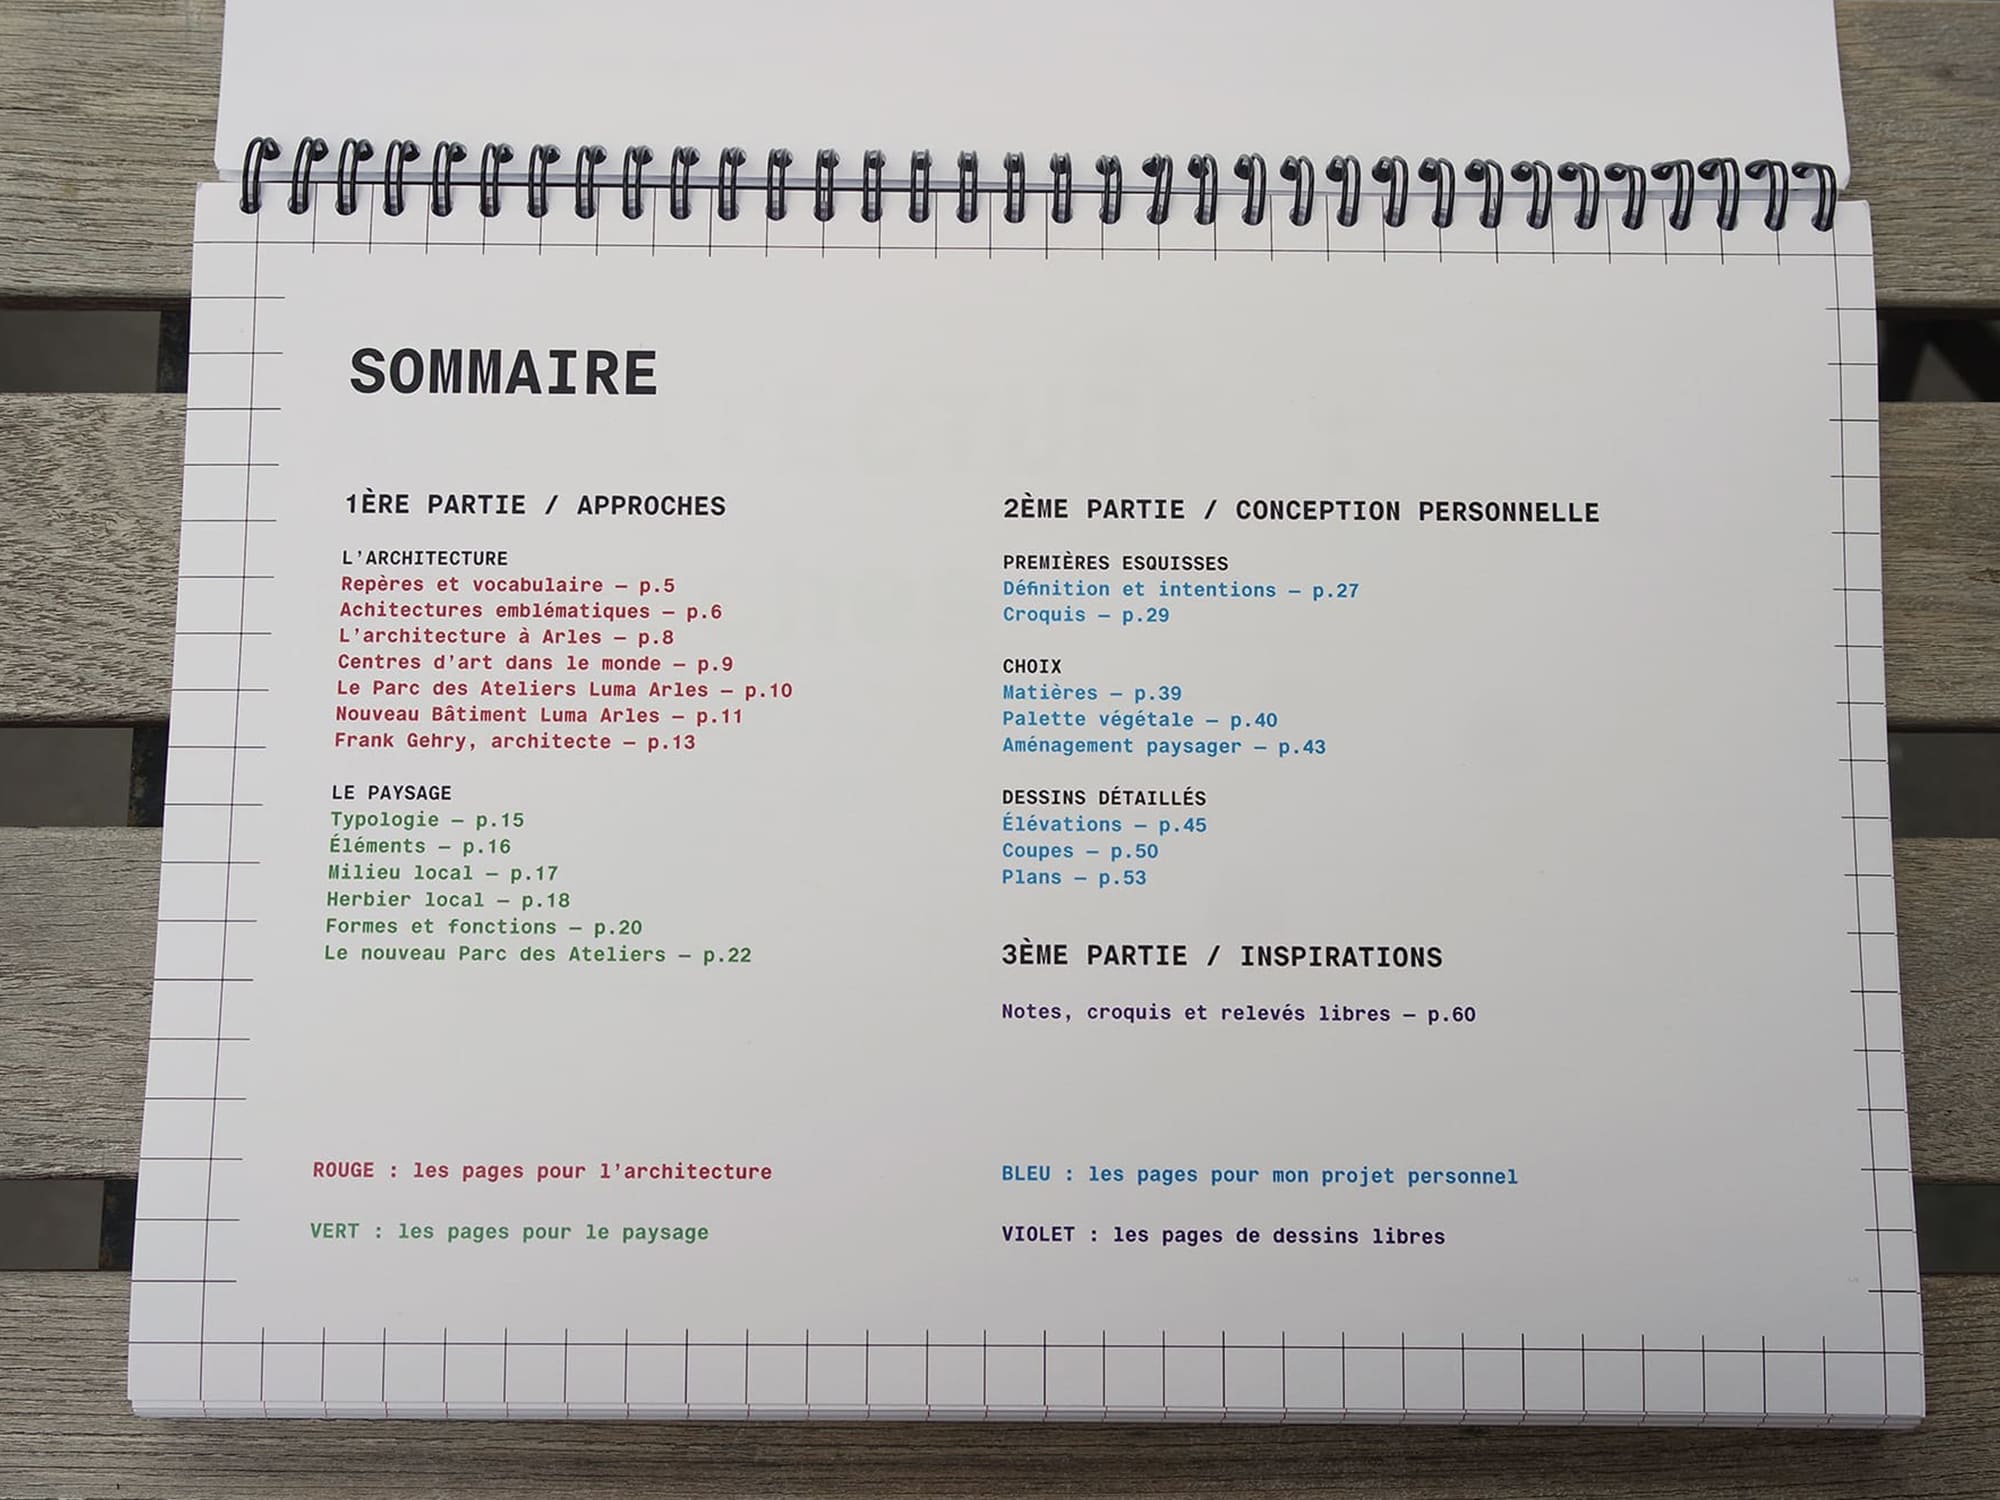 SOMMAIRE
1ÈRE PARTIE / APPROCHES
L'ARCHITECTURE
Repères et vocabulaire — p.5
Achitectures emblématiques — p.6
L'architecture à Arles — p.8
Centres d'art dans le monde — p.9
Le Parc des Ateliers Luma Arles — p.10
Nouveau Bâtiment Luma Arles — p.11
Frank Gehry, architecte — p.13
LE PAYSAGE
Typologie — p.15
Éléments — p.16
Milieu local — p.17
Herbier local — p.18
Formes et fonctions — p.20
Le nouveau Parc des Ateliers — p.22
2ÈME PARTIE / CONCEPTION PERSONNELLE
PREMIÈRES ESQUISSES
Définition et intentions — p.27
Croquis — p.29
CHOIX
Matières — p.39
Palette végétale — p.40
Aménagement paysager — p.43
DESSINS DÉTAILLÉS
Élévations — p.45
Coupes — p.50
Plans — p.53
3ÈME PARTIE / INSPIRATIONS
Notes, croquis et relevés libres — p.60
ROUGE : les pages pour l'architecture
VERT : les pages pour le paysage
BLEU : les pages pour mon projet personnel
VIOLET : les pages de dessins libres